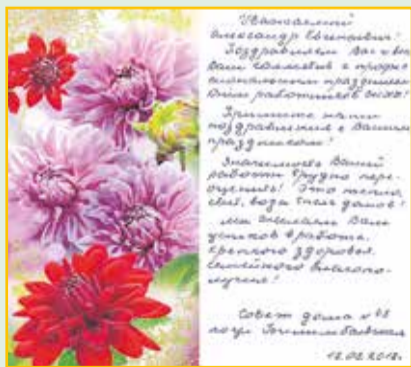 Уважаемый
Александр Евгеньевич!
Поздравляем Вас и весь
Ваш коллектив с профес
сиональным праздником
Днём работников ЖКХ!
Примите наши
поздравления с Вашим
праздником!
Значимость Вашей
работы трудно пере-
оценить! Это тепло,
свет, вода домов!
Мы желаем Вам
успехов в работе,
крепкого здоровья,
семейного благопо-
лучия!
Совет дома №
по ул.
12.02.2018г.